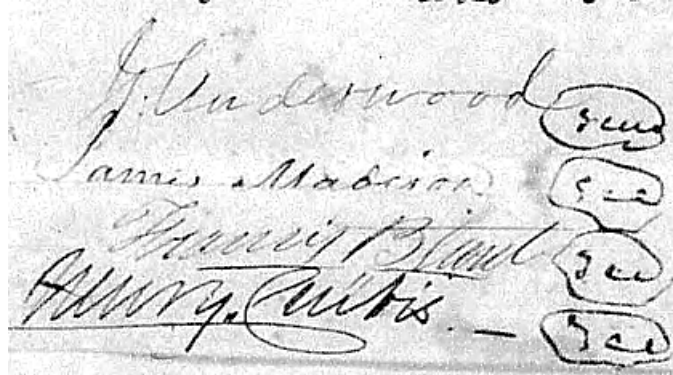 J. Underwood Seal
James Madison Seal
Francis Bland Seal
Henry Curtis. — Seal